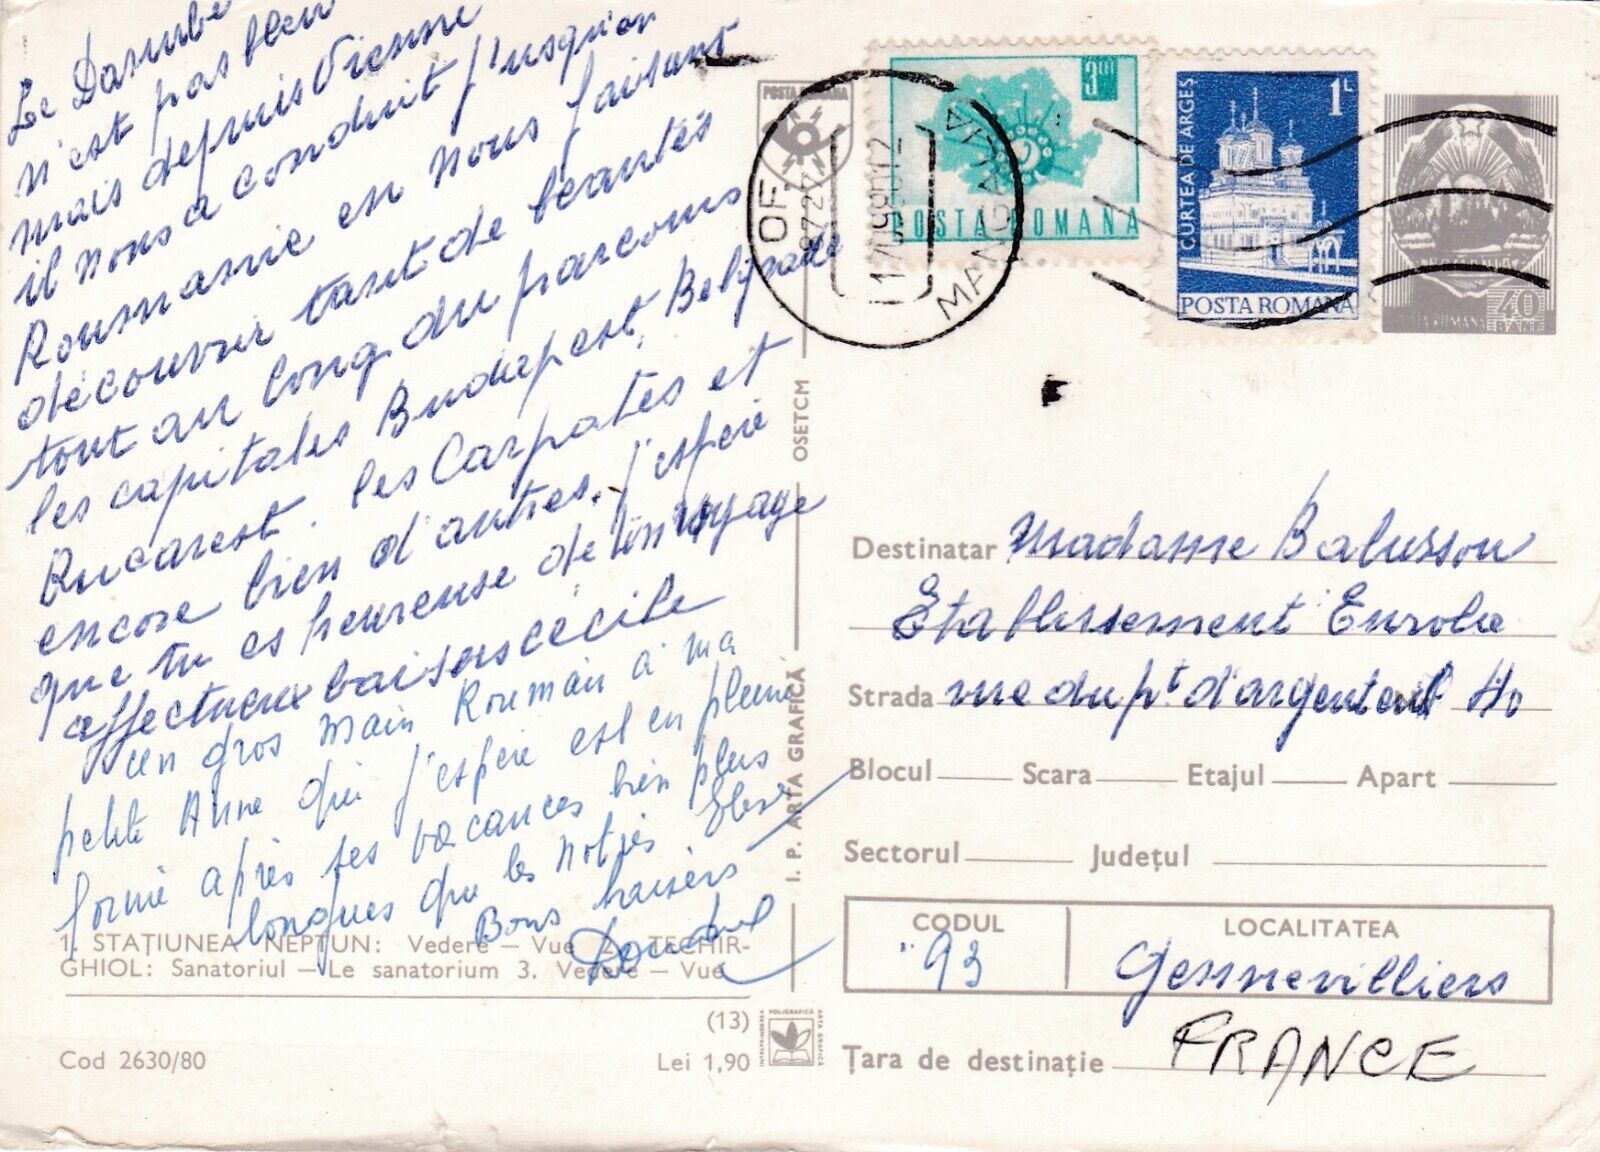 Le Danube
n'est pas bleu
mais depuis Vienne
il nous a conduit j'usqu'en
Roumanie en nous faisant
découvrir tant de beautés
tout au long du parcours
les capitales Budapest, Belgrade
Bucarest. les Carpates et
encore bien d'autres. j'espère
que tu es heureuse de ton voyage
affectueux baisers cécile
un gros main Roumain à ma
petite Anne qui j'espère est en pleine
forme après ses vacances bien plus
longues que les notres
Bons baisers
1. STAȚIUNEA NEPTUN: Vedere — Vue 2. TECHIR-
GHIOL: Sanatoriul — Le sanatorium 3. Vedere — Vue
(13)
Cod 2630/80
Lei 1,90
INTREPRINDEREA POLIGRAFICĂ ARTA GRAFICĂ
I. P. ARTA GRAFICĂ
OSETCM
POSTA ROMANA
OF
MANGALIA
3 LEI
POSTA ROMANA
1L
CURTEA DE ARGEȘ
POSTA ROMANA
POSTA ROMANA
40
BANI
Destinatar Madame Balusson
Etablissement Eurolie
Strada rue du pt d'argenteuil
Blocul Scara Etajul Apart
Sectorul Județul
CODUL LOCALITATEA
93 Gennevilliers
Țara de destinație FRANCE